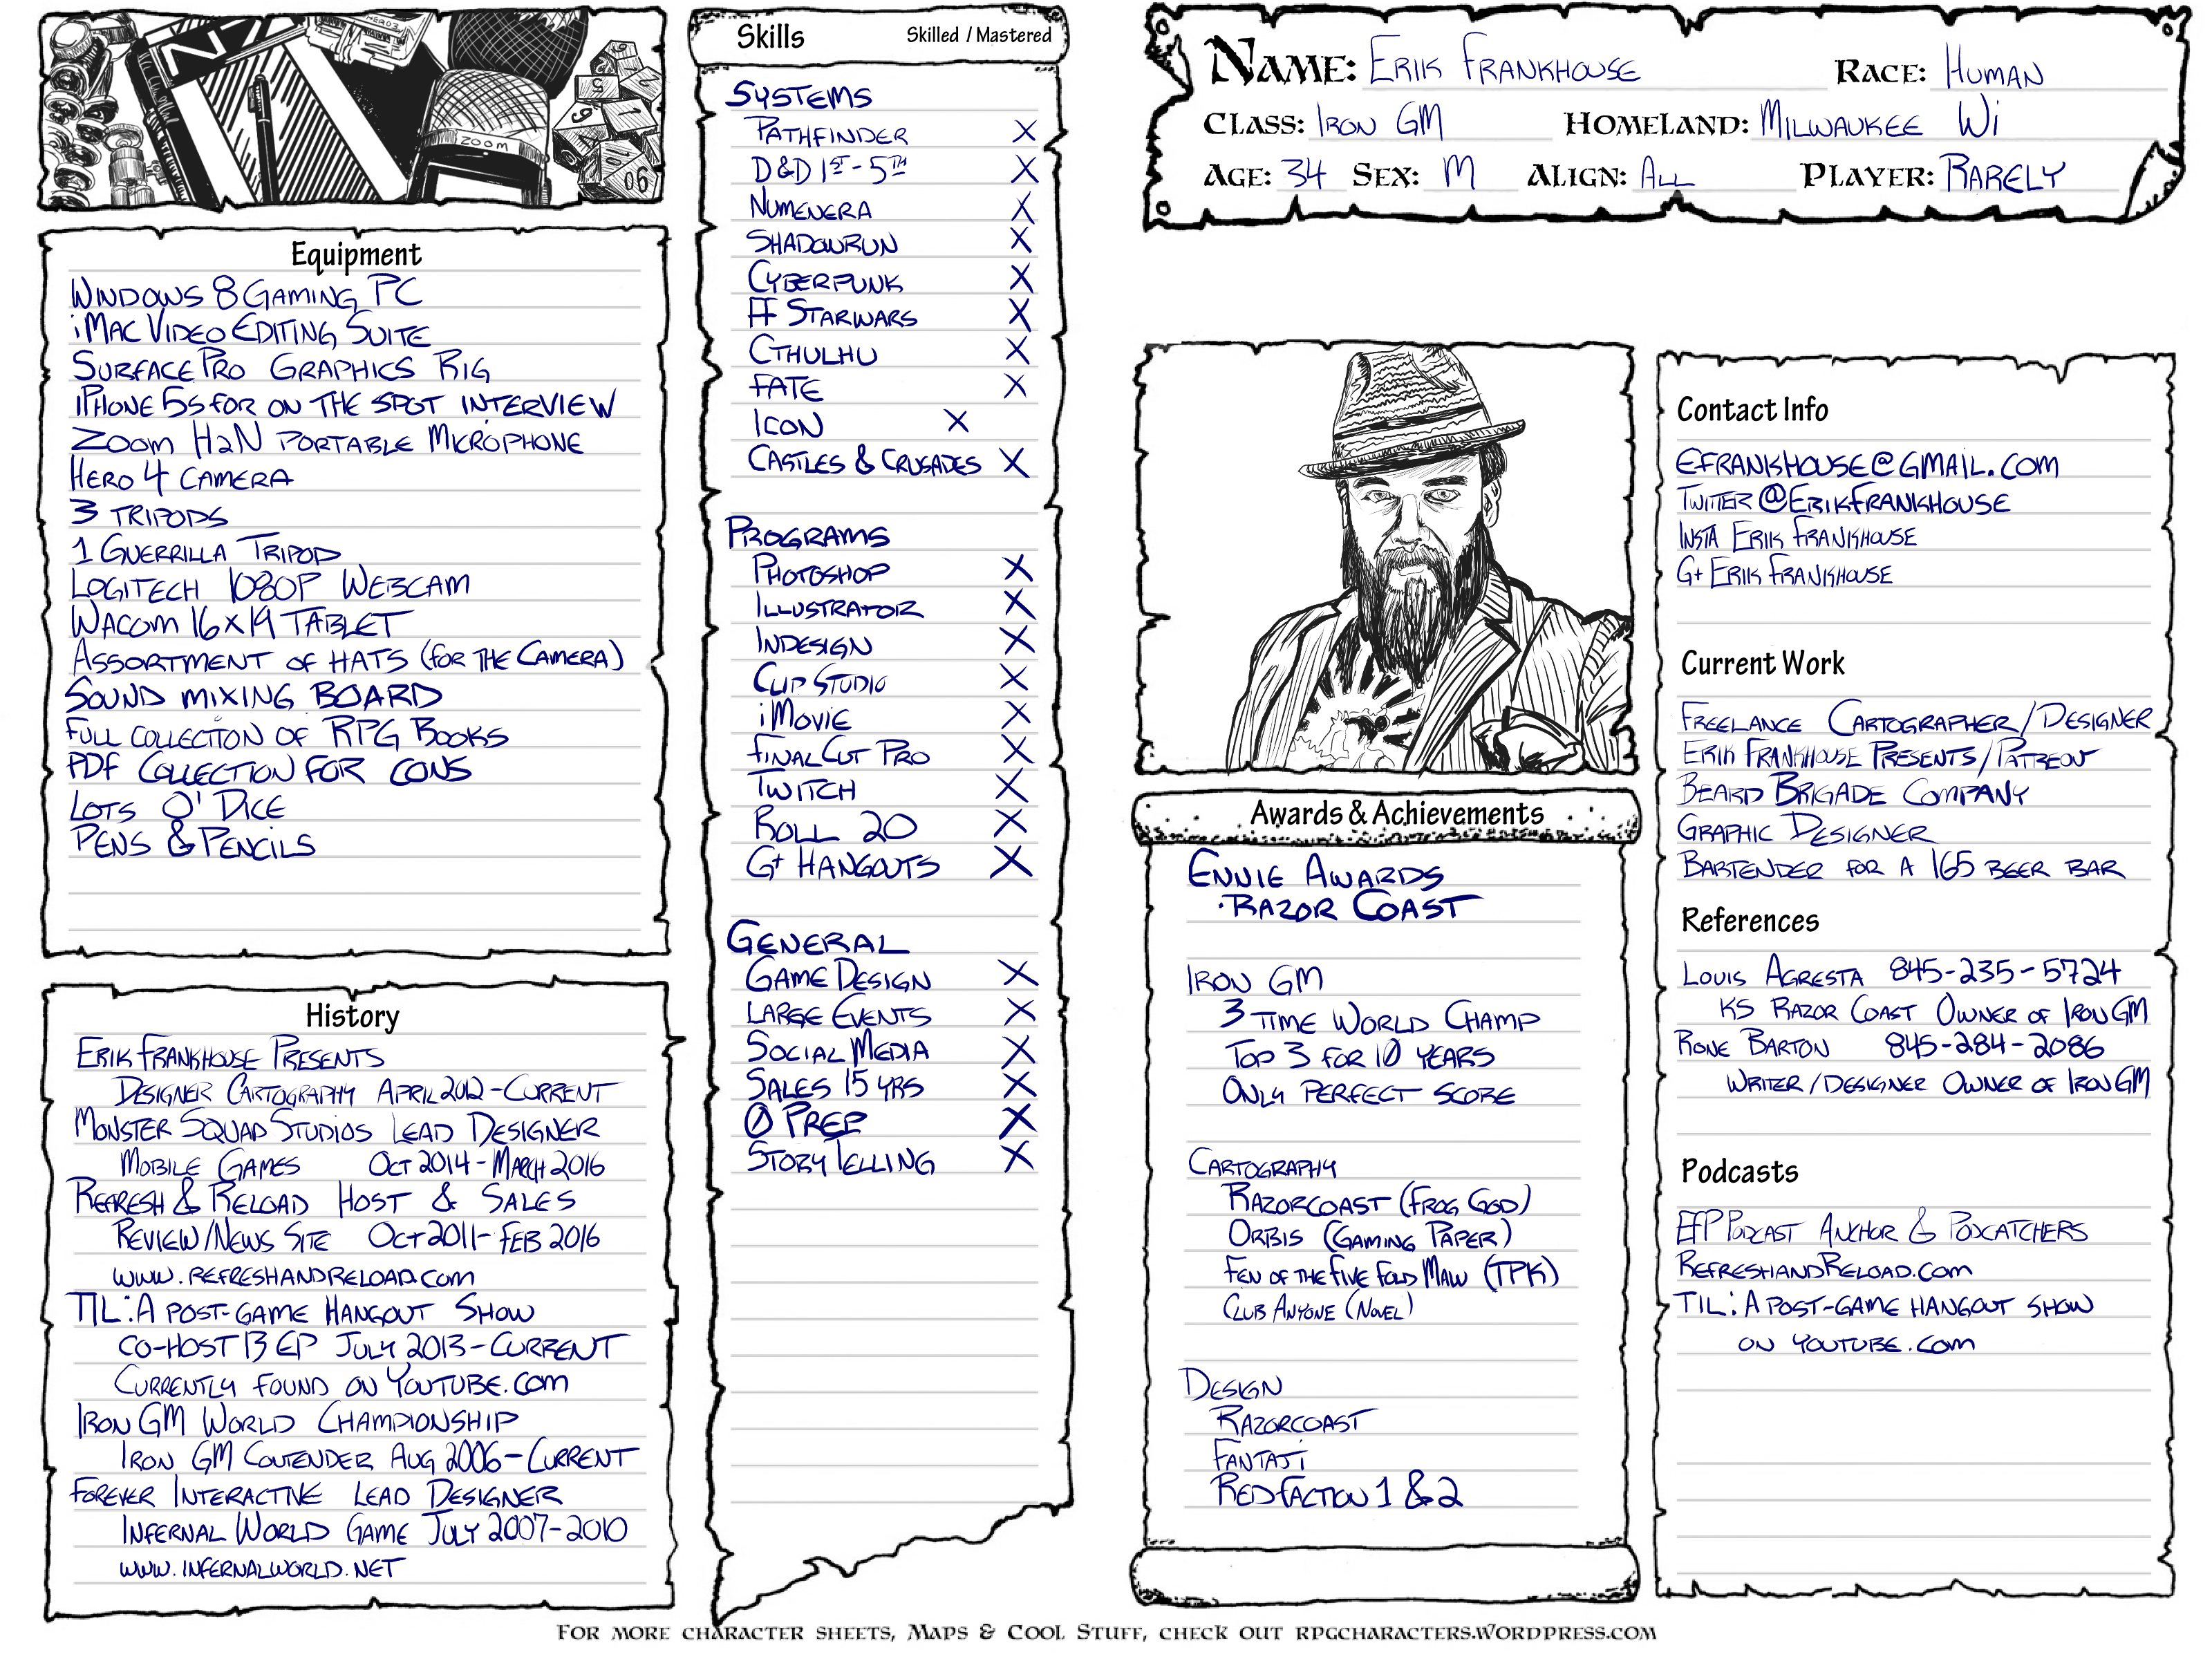 N
HERO3
ZOOM
Equipment
WINDOWS 8 GAMING PC
iMAC VIDEO EDITING SUITE
SURFACE PRO GRAPHICS RIG
iPHONE 5S FOR ON THE SPOT INTERVIEW
ZOOM H2N PORTABLE MICROPHONE
HERO 4 CAMERA
3 TRIPODS
1 GUERRILLA TRIPOD
LOGITECH 1080P WEBCAM
WACOM 16x19 TABLET
ASSORTMENT OF HATS (FOR THE CAMERA)
SOUND MIXING BOARD
FULL COLLECTION OF RPG BOOKS
PDF COLLECTION FOR CONS
LOTS O' DICE
PENS & PENCILS
History
ERIK FRANKHOUSE PRESENTS
DESIGNER CARTOGRAPHY APRIL 2012-CURRENT
MONSTER SQUAD STUDIOS LEAD DESIGNER
MOBILE GAMES OCT 2014-MARCH 2016
REFRESH & RELOAD HOST & SALES
REVIEW/NEWS SITE OCT 2011-FEB 2016
WWW.REFRESHANDRELOAD.COM
TIL: A POST-GAME HANGOUT SHOW
CO-HOST 13 EP JULY 2013-CURRENT
CURRENTLY FOUND ON YOUTUBE.COM
IRON GM WORLD CHAMPIONSHIP
IRON GM CONTENDER AUG 2006-CURRENT
FOREVER INTERACTIVE LEAD DESIGNER
INFERNAL WORLD GAME JULY 2007-2010
WWW.INFERNALWORLD.NET
Skills Skilled / Mastered
SYSTEMS
PATHFINDER X
D&D 1ST-5TH X
NUMENERA X
SHADOWRUN X
CYBERPUNK X
FF STARWARS X
CTHULHU X
FATE X
ICON X
CASTLES & CRUSADES X
PROGRAMS
PHOTOSHOP X
ILLUSTRATOR X
INDESIGN X
CLIP STUDIO X
iMOVIE X
FINAL CUT PRO X
TWITCH X
ROLL 20 X
G+ HANGOUTS X
GENERAL
GAME DESIGN X
LARGE EVENTS X
SOCIAL MEDIA X
SALES 15 YRS X
0 PREP X
STORY TELLING X
NAME: ERIK FRANKHOUSE RACE: HUMAN
CLASS: IRON GM HOMELAND: MILWAUKEE WI
AGE: 34 SEX: M ALIGN: ALL PLAYER: RARELY
Awards & Achievements
ENNIE AWARDS
·RAZOR COAST
IRON GM
3 TIME WORLD CHAMP
TOP 3 FOR 10 YEARS
ONLY PERFECT SCORE
CARTOGRAPHY
RAZORCOAST (FROG GOD)
ORBIS (GAMING PAPER)
FEN OF THE FIVE FOLD MAW (TPK)
CLUB ANYONE (NOVEL)
DESIGN
RAZORCOAST
FANTAJI
RED FACTION 1 & 2
Contact Info
EFRANKHOUSE@GMAIL.COM
TWITTER @ERIKFRANKHOUSE
INSTA ERIK FRANKHOUSE
G+ ERIK FRANKHOUSE
Current Work
FREELANCE CARTOGRAPHER/DESIGNER
ERIK FRANKHOUSE PRESENTS/PATREON
BEARD BRIGADE COMPANY
GRAPHIC DESIGNER
BARTENDER FOR A 165 BEER BAR
References
LOUIS AGRESTA 845-235-5724
KS RAZOR COAST OWNER OF IRON GM
RONE BARTON 845-284-2086
WRITER/DESIGNER OWNER OF IRON GM
Podcasts
EFP PODCAST ANCHOR & PODCATCHERS
REFRESHANDRELOAD.COM
TIL: A POST-GAME HANGOUT SHOW
ON YOUTUBE.COM
FOR MORE CHARACTER SHEETS, MAPS & COOL STUFF, CHECK OUT RPGCHARACTERS.WORDPRESS.COM